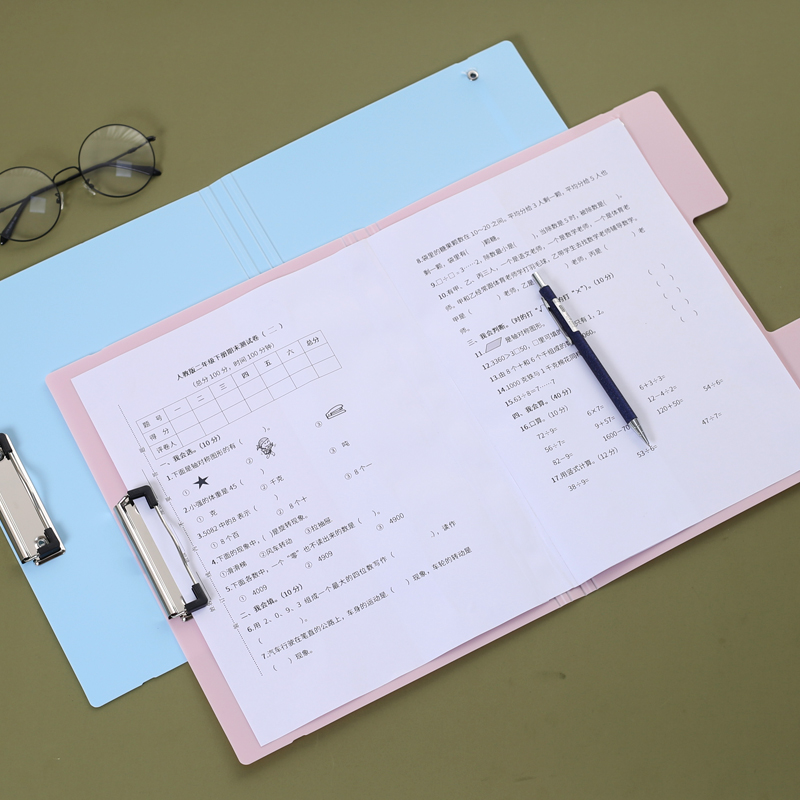 人教版二年级下册期末测试卷（二）
（总分100分，时间100分钟）
题 号 一 二 三 四 五 六 总分
得 分
评卷人
一、我会选。（10分）
1.下面是轴对称图形的有（ ）。
① ② ③
2.小强的体重是45（ ）
① 克 ② 千克 ③ 吨
3.5082中的8表示（ ）
① 8个百 ② 8个十 ③ 8个一
4.下面的现象中，（ ）是旋转现象。
①滑滑梯 ②风车转动 ③拉抽屉
5.下面各数中，一个“零”也不读出来的数是（ ）。
① 4009 ② 4909 ③ 4900
二、我会填。（10分）
6.用 2、0、9、3 组成一个最大的四位数写作（ ），读作
（ ）。
7.汽车行驶在笔直的公路上，车身的运动是（ ）现象，车轮的转动是
（ ）现象。
8.袋里的糖果颗数在10~20之间，平均分给3人剩一颗，平均分给5人也
剩一颗，袋里有（ ）颗糖。
9.□÷□=3……2，除数最小是（ ），当除数是5时，被除数是（ ）。
10.有甲、乙、丙三人，一个是语文老师，一个是数学老师，一个是体育老
师。甲和乙经常跟体育老师学打羽毛球，乙带学生去找数学老师辅导数学。
甲是（ ）老师，乙是（ ）老师，丙是（ ）老
师。
三、我会判断。（对的打“√” 的打“×”）。（10分）
11. 是轴对称图形。 （ ）
12.3360>3□50，□里可填的 只有1、2。 （ ）
13.由8个十和6个千组成的数 060。 （ ）
14.1000克铁与1千克棉花同样 （ ）
15.63÷8=7……7
四、我会算。（40分）
16.口算。（10分）
72÷9= 6×7= 6+3÷3=
56÷7= 9+57= 12−4÷2= 54÷6=
82−9= 1600−70 120+50= 47÷7=
17.用竖式计算。（12分）
38÷9= 53÷6=